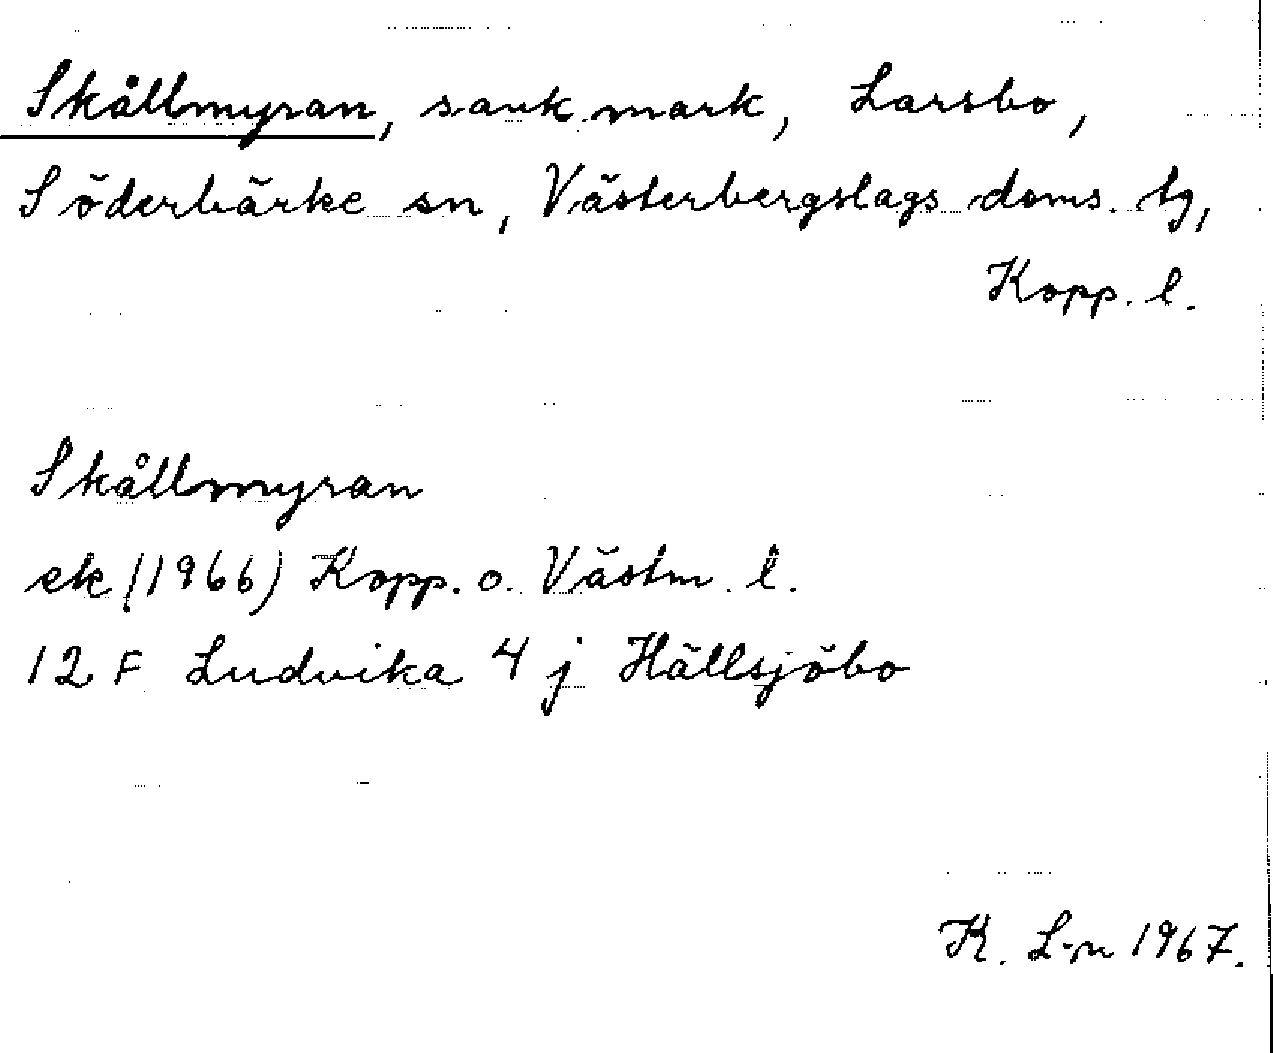 Skållmyran, sank mark, Larsbo,
Söderbärke sn, Västerbergslags doms. tg,
Kopp. l.
Skållmyran
ek (1966) Kopp. o. Västm. l.
12 F Ludvika 4 j Hällsjöbo
K. L-n 1967.